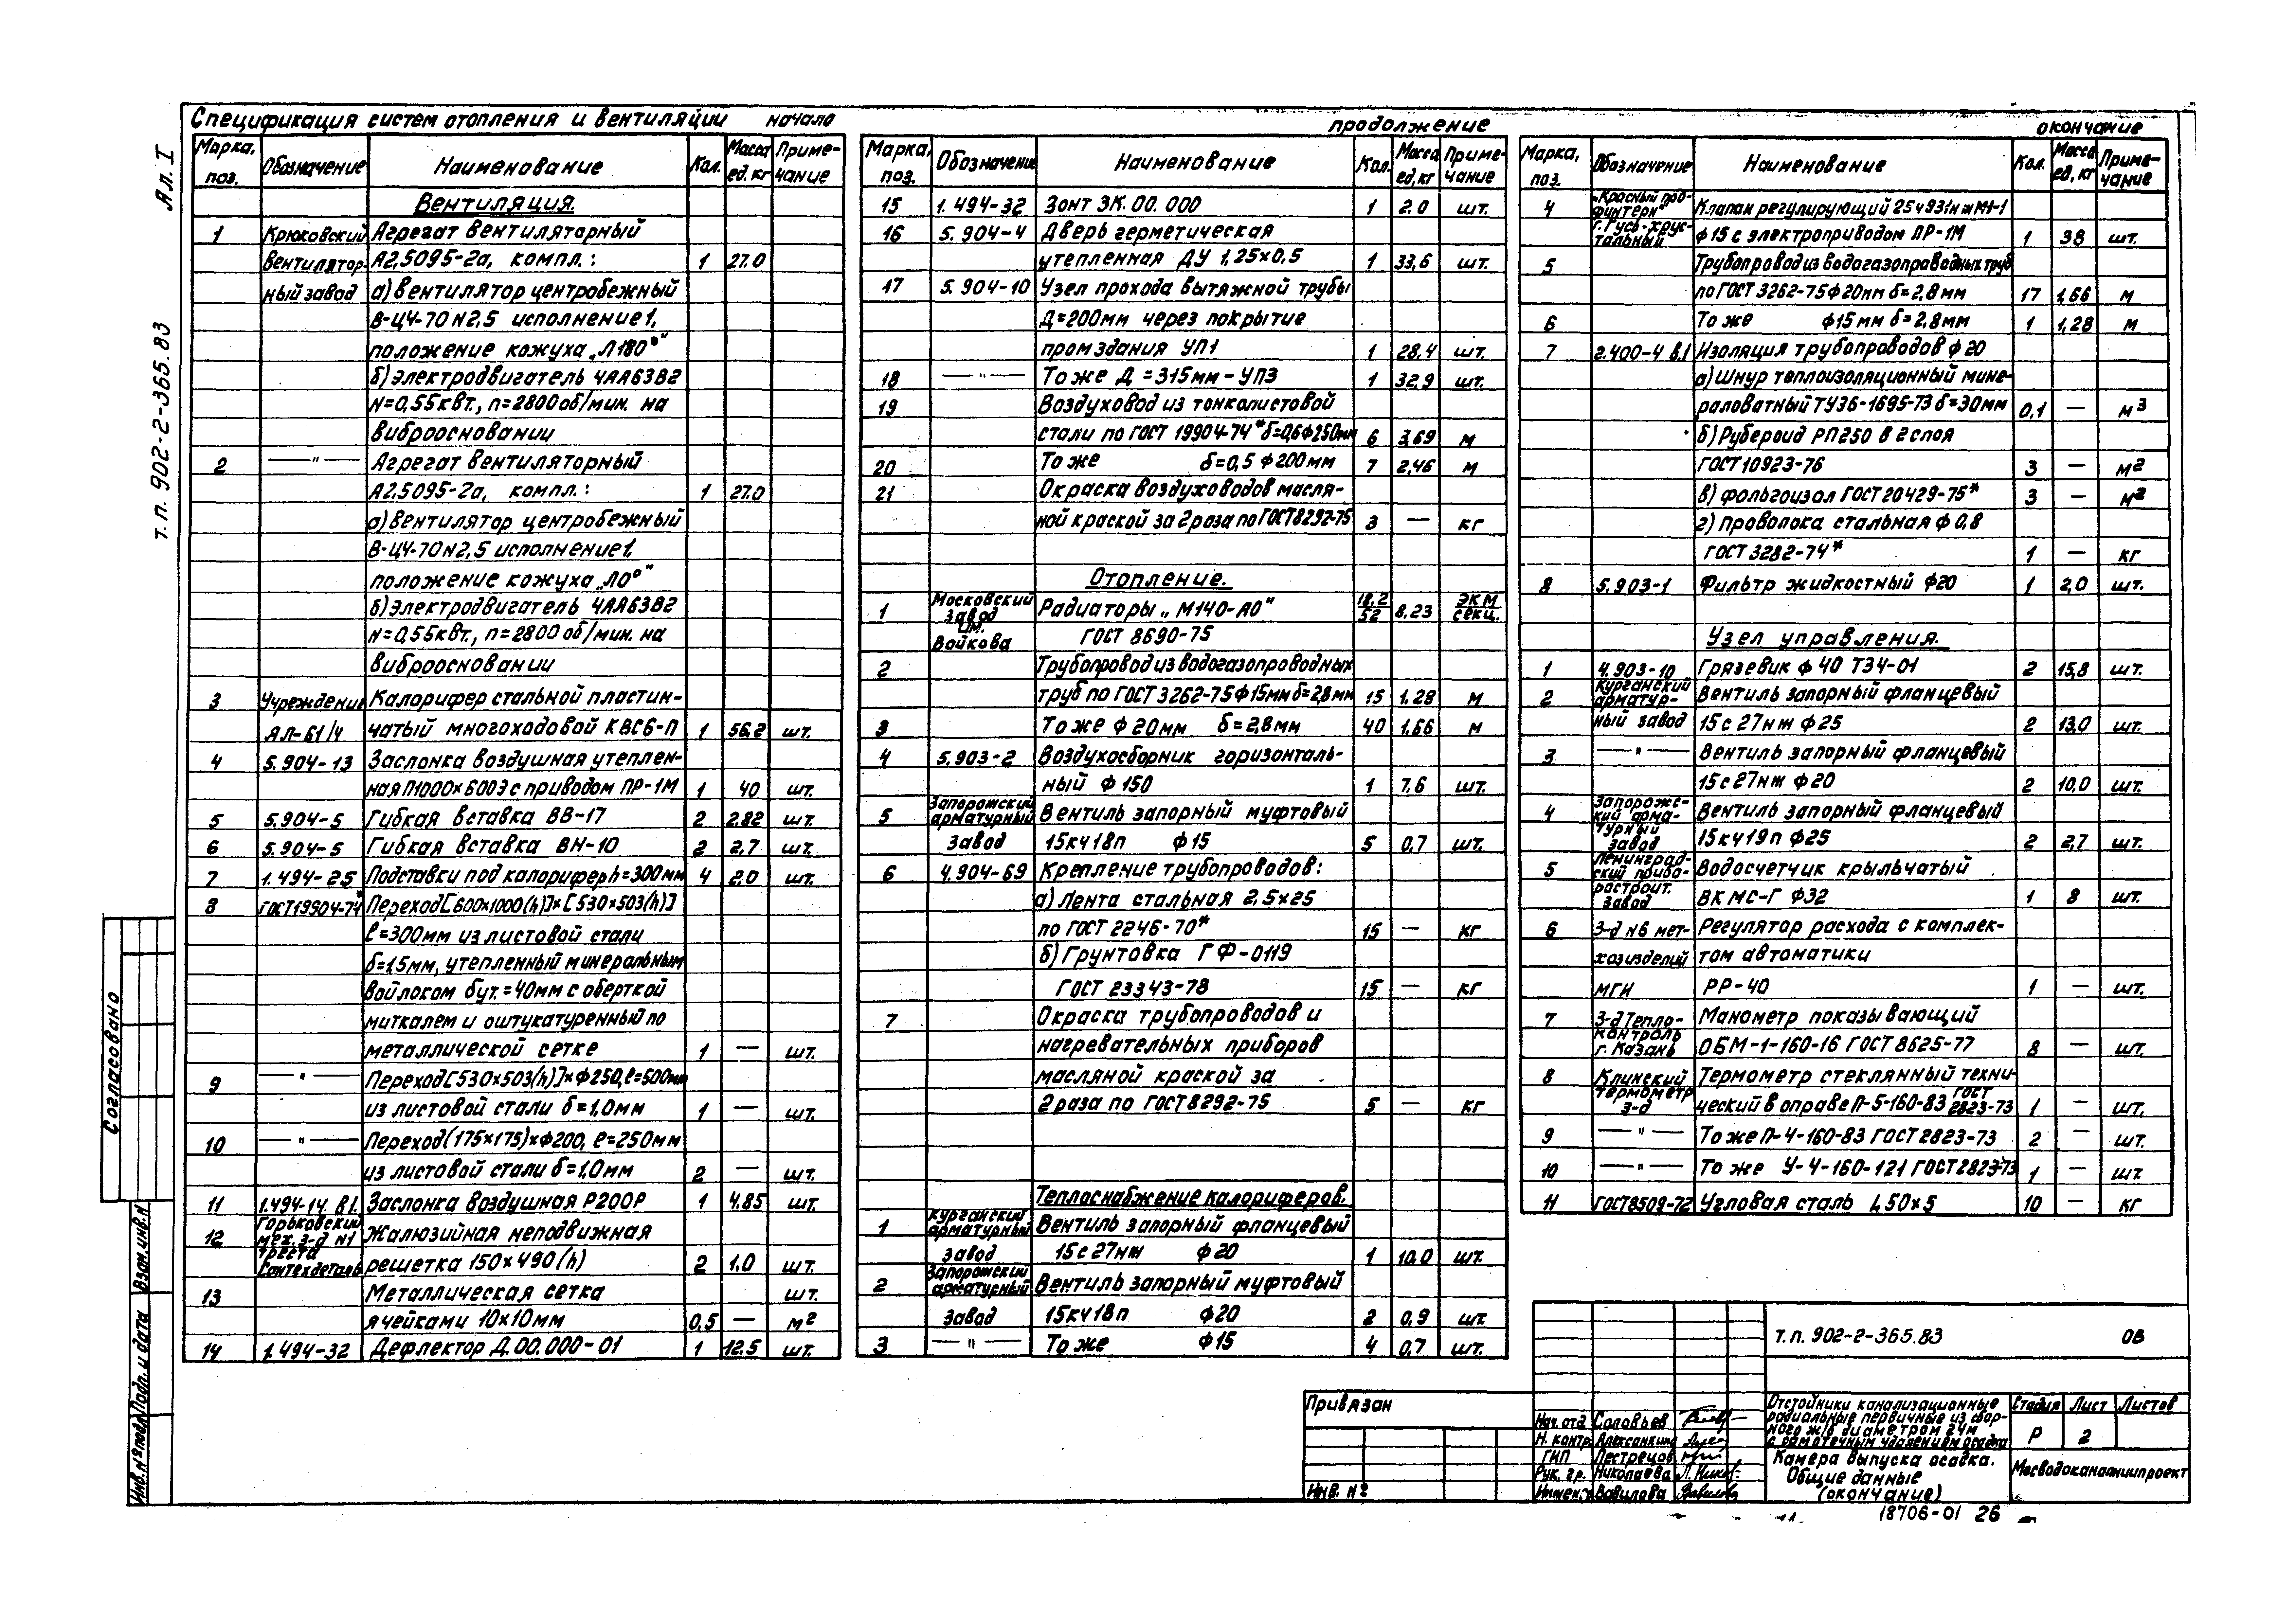 Спецификация систем отопления и вентиляции начало
Марка, поз. Обозначение Наименование Кол. Масса ед. кг Приме-чание
Вентиляция.
1 Крюковский Агрегат вентиляторный
вентилятор- А2,5095-2а, компл.: 1 27.0
ный завод а) вентилятор центробежный
В-Ц4-70 N2,5 исполнение 1,
положение кожуха „Л180°"
б) электродвигатель 4АА63В2
N=0,55квт., n=2800 об/мин. на
виброосновании
2 —"— Агрегат вентиляторный
А2,5095-2а, компл.: 1 27.0
а) вентилятор центробежный
В-Ц4-70 N2,5 исполнение 1,
положение кожуха „Л0°"
б) электродвигатель 4АА63В2
N=0,55квт., n=2800 об/мин. на
виброосновании
3 Учреждение Калорифер стальной пластин-
ЯЛ-61/4 чатый многоходовой КВС6-П 1 56.2 шт.
4 5.904-13 Заслонка воздушная утеплен-
ная П1000×600Э с приводом ПР-1М 1 40 шт.
5 5.904-5 Гибкая вставка ВВ-17 2 2.82 шт.
6 5.904-5 Гибкая вставка ВН-10 2 2,7 шт.
7 1.494-25 Подставки под калорифер h=300мм 4 2.0 шт.
8 ГОСТ19904-74* Переход [600×1000(h)]×[530×503(h)]
ℓ=300мм из листовой стали
δ=1,5мм, утепленный минеральным
войлоком δут.=40мм с оберткой
миткалем и оштукатуренный по
металлической сетке 1 — шт.
9 —"— Переход [530×503(h)]×ф250, ℓ=500мм
из листовой стали δ=1,0мм 1 — шт.
10 —"— Переход (175×175)×ф200, ℓ=250мм
из листовой стали δ=1,0мм 2 — шт.
11 1.494-14. В1. Заслонка воздушная Р200Р 1 4.85 шт.
12 Горьковский мех. з-д N1 Жалюзийная неподвижная
треста Сантехдеталь решетка 150×490(h) 2 1.0 шт.
13 Металлическая сетка шт.
ячейками 10×10мм 0,5 — м2
14 1.494-32 Дефлектор Д.00.000-01 1 12.5 шт.
продолжение
Марка, поз. Обозначение Наименование Кол. Масса ед, кг Приме-чание
15 1.494-32 Зонт ЗК.00.000 1 2.0 шт.
16 5.904-4 Дверь герметическая
утепленная ДУ 1,25×0,5 1 33,6 шт.
17 5.904-10 Узел прохода вытяжной трубы
Д=200мм через покрытие
промздания УП1 1 28.4 шт.
18 —"— То же Д=315мм-УП3 1 32,9 шт.
19 Воздуховод из тонколистовой
стали по ГОСТ 19904-74* δ=0,6ф250мм 6 3,69 м
20 То же δ=0,5 ф200мм 7 2,46 м
21 Окраска воздуховодов масля-
ной краской за 2 раза по ГОСТ8292-75 3 — кг
Отопление.
1 Московский завод им. Войкова Радиаторы „М140-АО" 18,2/52 8,23 экм/секц.
ГОСТ 8690-75
2 Трубопровод из водогазопроводных
труб по ГОСТ 3262-75 ф15мм δ=2,8мм 15 1.28 м
3 То же ф20мм δ=2,8мм 40 1,66 м
4 5.903-2 Воздухосборник горизонталь-
ный ф150 1 7.6 шт.
5 Запорожский арматурный Вентиль запорный муфтовый
завод 15кч18п ф15 5 0,7 шт.
6 4.904-69 Крепление трубопроводов:
а) Лента стальная 2,5×25
по ГОСТ 2246-70* 15 — кг
б) Грунтовка ГФ-0119
ГОСТ 23343-78 15 — кг
7 Окраска трубопроводов и
нагревательных приборов
масляной краской за
2 раза по ГОСТ 8292-75 5 — кг
Теплоснабжение калориферов.
1 Курганский арматурный Вентиль запорный фланцевый
завод 15с27нж ф20 1 10.0 шт.
2 Запорожский арматурный Вентиль запорный муфтовый
завод 15кч18п ф20 2 0,9 шт.
3 —"— То же ф15 4 0,7 шт.
окончание
Марка, поз. Обозначение Наименование Кол. Масса ед, кг Приме-чание
4 „Красный проф-интерн" Клапан регулирующий 25ч931нж МН-1
г. Гусь-хрус-тальный ф15 с электроприводом ПР-1М 1 38 шт.
5 Трубопровод из водогазопроводных труб
по ГОСТ 3262-75ф20мм δ=2,8мм 17 1,66 м
6 То же ф15мм δ=2,8мм 1 1,28 м
7 2.400-4 В.1 Изоляция трубопроводов ф20
а) Шнур теплоизоляционный мине-
раловатный ТУ36-1695-73 δ=30мм 0,1 — м3
б) Рубероид РП250 в 2 слоя
ГОСТ10923-76 3 — м2
в) фольгоизол ГОСТ20429-75* 3 — м2
г) Проволока стальная ф0,8
ГОСТ 3282-74* 1 — кг
8 5.903-1 Фильтр жидкостный ф20 1 2,0 шт.
Узел управления.
1 4.903-10 Грязевик ф40 Т34-01 2 15,8 шт.
2 Курганский арматур- Вентиль запорный фланцевый
ный завод 15с27нж ф25 2 13,0 шт.
3 —"— Вентиль запорный фланцевый
15с27нж ф20 2 10,0 шт.
4 Запорожс-кий арма- Вентиль запорный фланцевый
турный завод 15кч19п ф25 2 2,7 шт.
5 Ленинград-ский прибо- Водосчетчик крыльчатый
растроит. завод ВКМС-Г ф32 1 8 шт.
6 З-д N6 мет- Регулятор расхода с комплек-
хозизделий том автоматики
МГИ РР-40 1 — шт.
7 З-д Тепло- Манометр показывающий
контроль г. Казань ОБМ-1-160-16 ГОСТ 8625-77 8 — шт.
8 Клинский Термометр стеклянный техни-
термометр з-д ческий в оправе П-5-160-83 ГОСТ 2823-73 1 — шт.
9 —"— То же П-4-160-83 ГОСТ 2823-73 2 — шт.
10 —"— То же У-4-160-121 ГОСТ2823-73 1 — шт.
11 ГОСТ8509-72 Угловая сталь L50×5 10 — кг
т.п. 902-2-365.83 Ал. I
Согласовано
Инв. № подл. Подп. и дата Взам. инв. №
Привязан
Инв. №
т.п. 902-2-365.83 ОВ
Нач. отд. Соловьев
Н. контр. Алексанкина
ГИП Пестрецов
Рук. гр. Николаева
Инжен. Вавилова
Отстойники канализационные
радиальные первичные из сбор-
ного ж/б диаметром 24м
с самотечным удалением осадка
Камера выпуска осадка.
Общие данные
(окончание)
Стадия Лист Листов
Р 2
Мосводоканалниипроект
18706-01 26